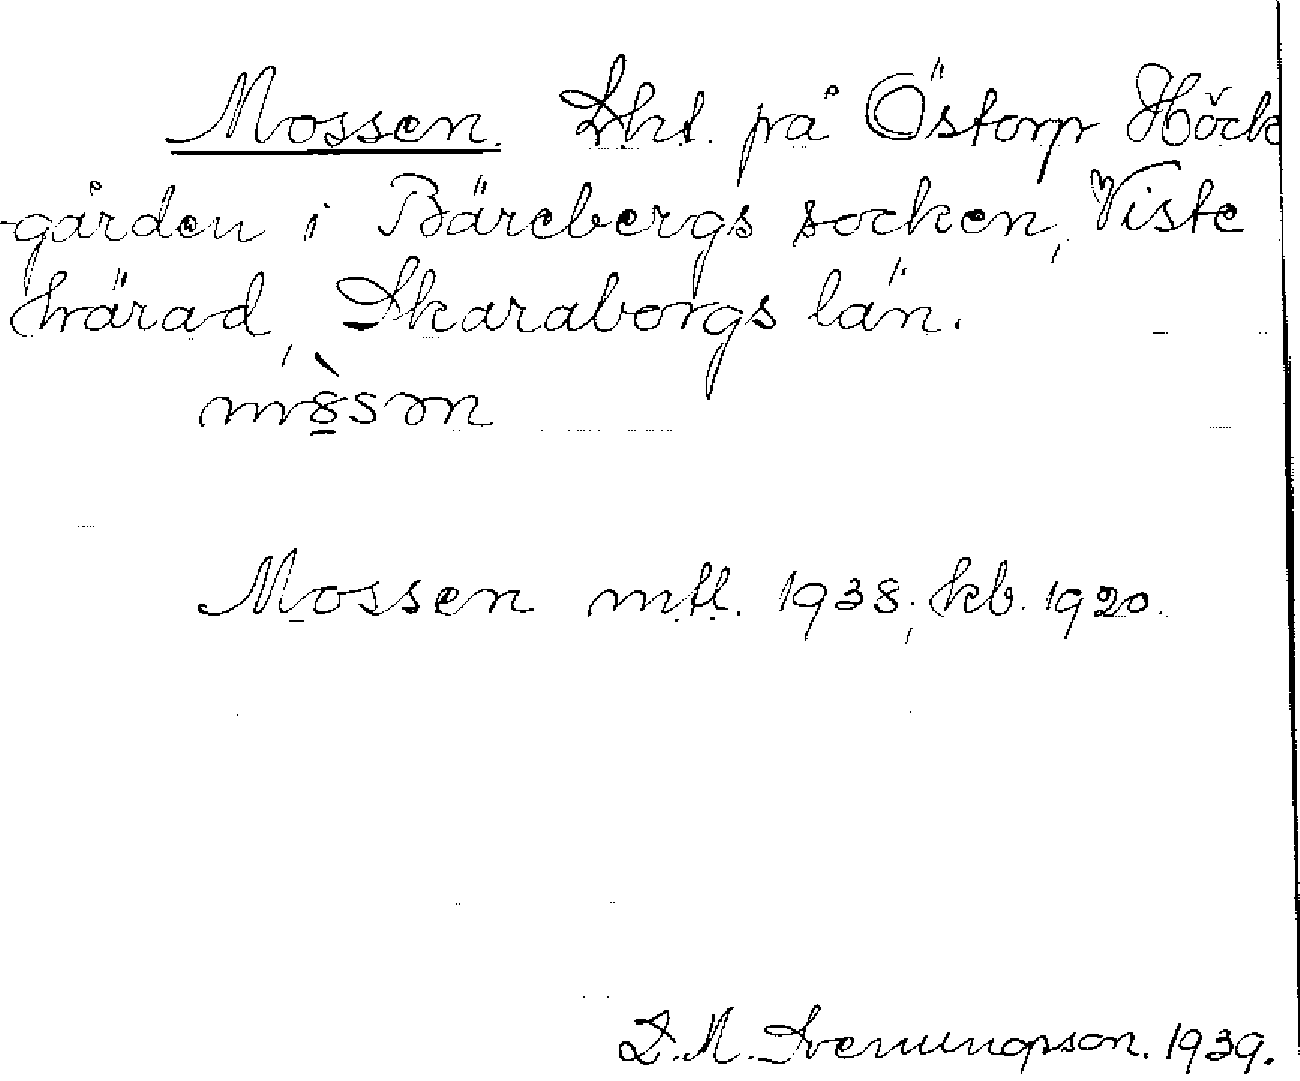 Mossen. Lht. på Östorp Höck
-gården i Bärebergs socken, Viste
härad, Skaraborgs län.
Mossen mtl. 1938; kb. 1920.
D. A. Svenungsson. 1939.